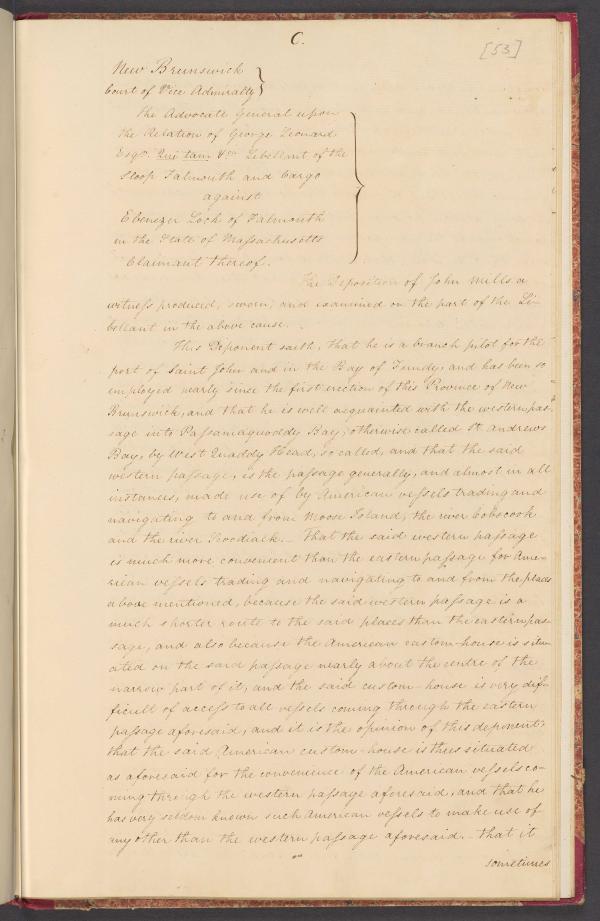 C.
[53]
New Brunswick
Court of Vice Admiralty
The Advocate General upon
the Relation of George Leonard
Esqr. Qui tam &ca Libellant of the
Sloop Falmouth and Cargo
against
Ebenezer Lock of Falmouth
in the State of Massachusetts
Claimant thereof.
The Deposition of John Mills a
witness produced, sworn, and examined on the part of the Li-
bellant in the above cause.
This Deponent saith, that he is a branch pilot for the
port of Saint John and in the Bay of Fundy, and has been so
employed nearly since the first erection of this Province of New
Brunswick, and that he is well acquainted with the western pas-
sage into Passamaquoddy Bay, otherwise called St. Andrews
Bay, by West Quaddy Head, so called, and that the said
western passage, is the passage generally, and almost in all
instances, made use of by American vessels trading and
navigating to and from Moose Island, the river Cobscook
and the river Scoodiack. – That the said western passage
is much more convenient than the eastern passage for Ame-
rican vessels trading and navigating to and from the places
above mentioned, because the said western passage is a
much shorter route to the said places than the eastern pas-
sage, and also because the American custom-house is situ-
ated on the said passage nearly about the centre of the
narrow part of it, and the said custom-house is very dif-
ficult of access to all vessels coming through the eastern
passage aforesaid, and it is the opinion of this deponent
that the said American custom-house is thus situated
as aforesaid for the convenience of the American vessels co-
ming through the western passage aforesaid, and that he
has very seldom known such American vessels to make use of
any other than the western passage aforesaid. – That it
sometimes